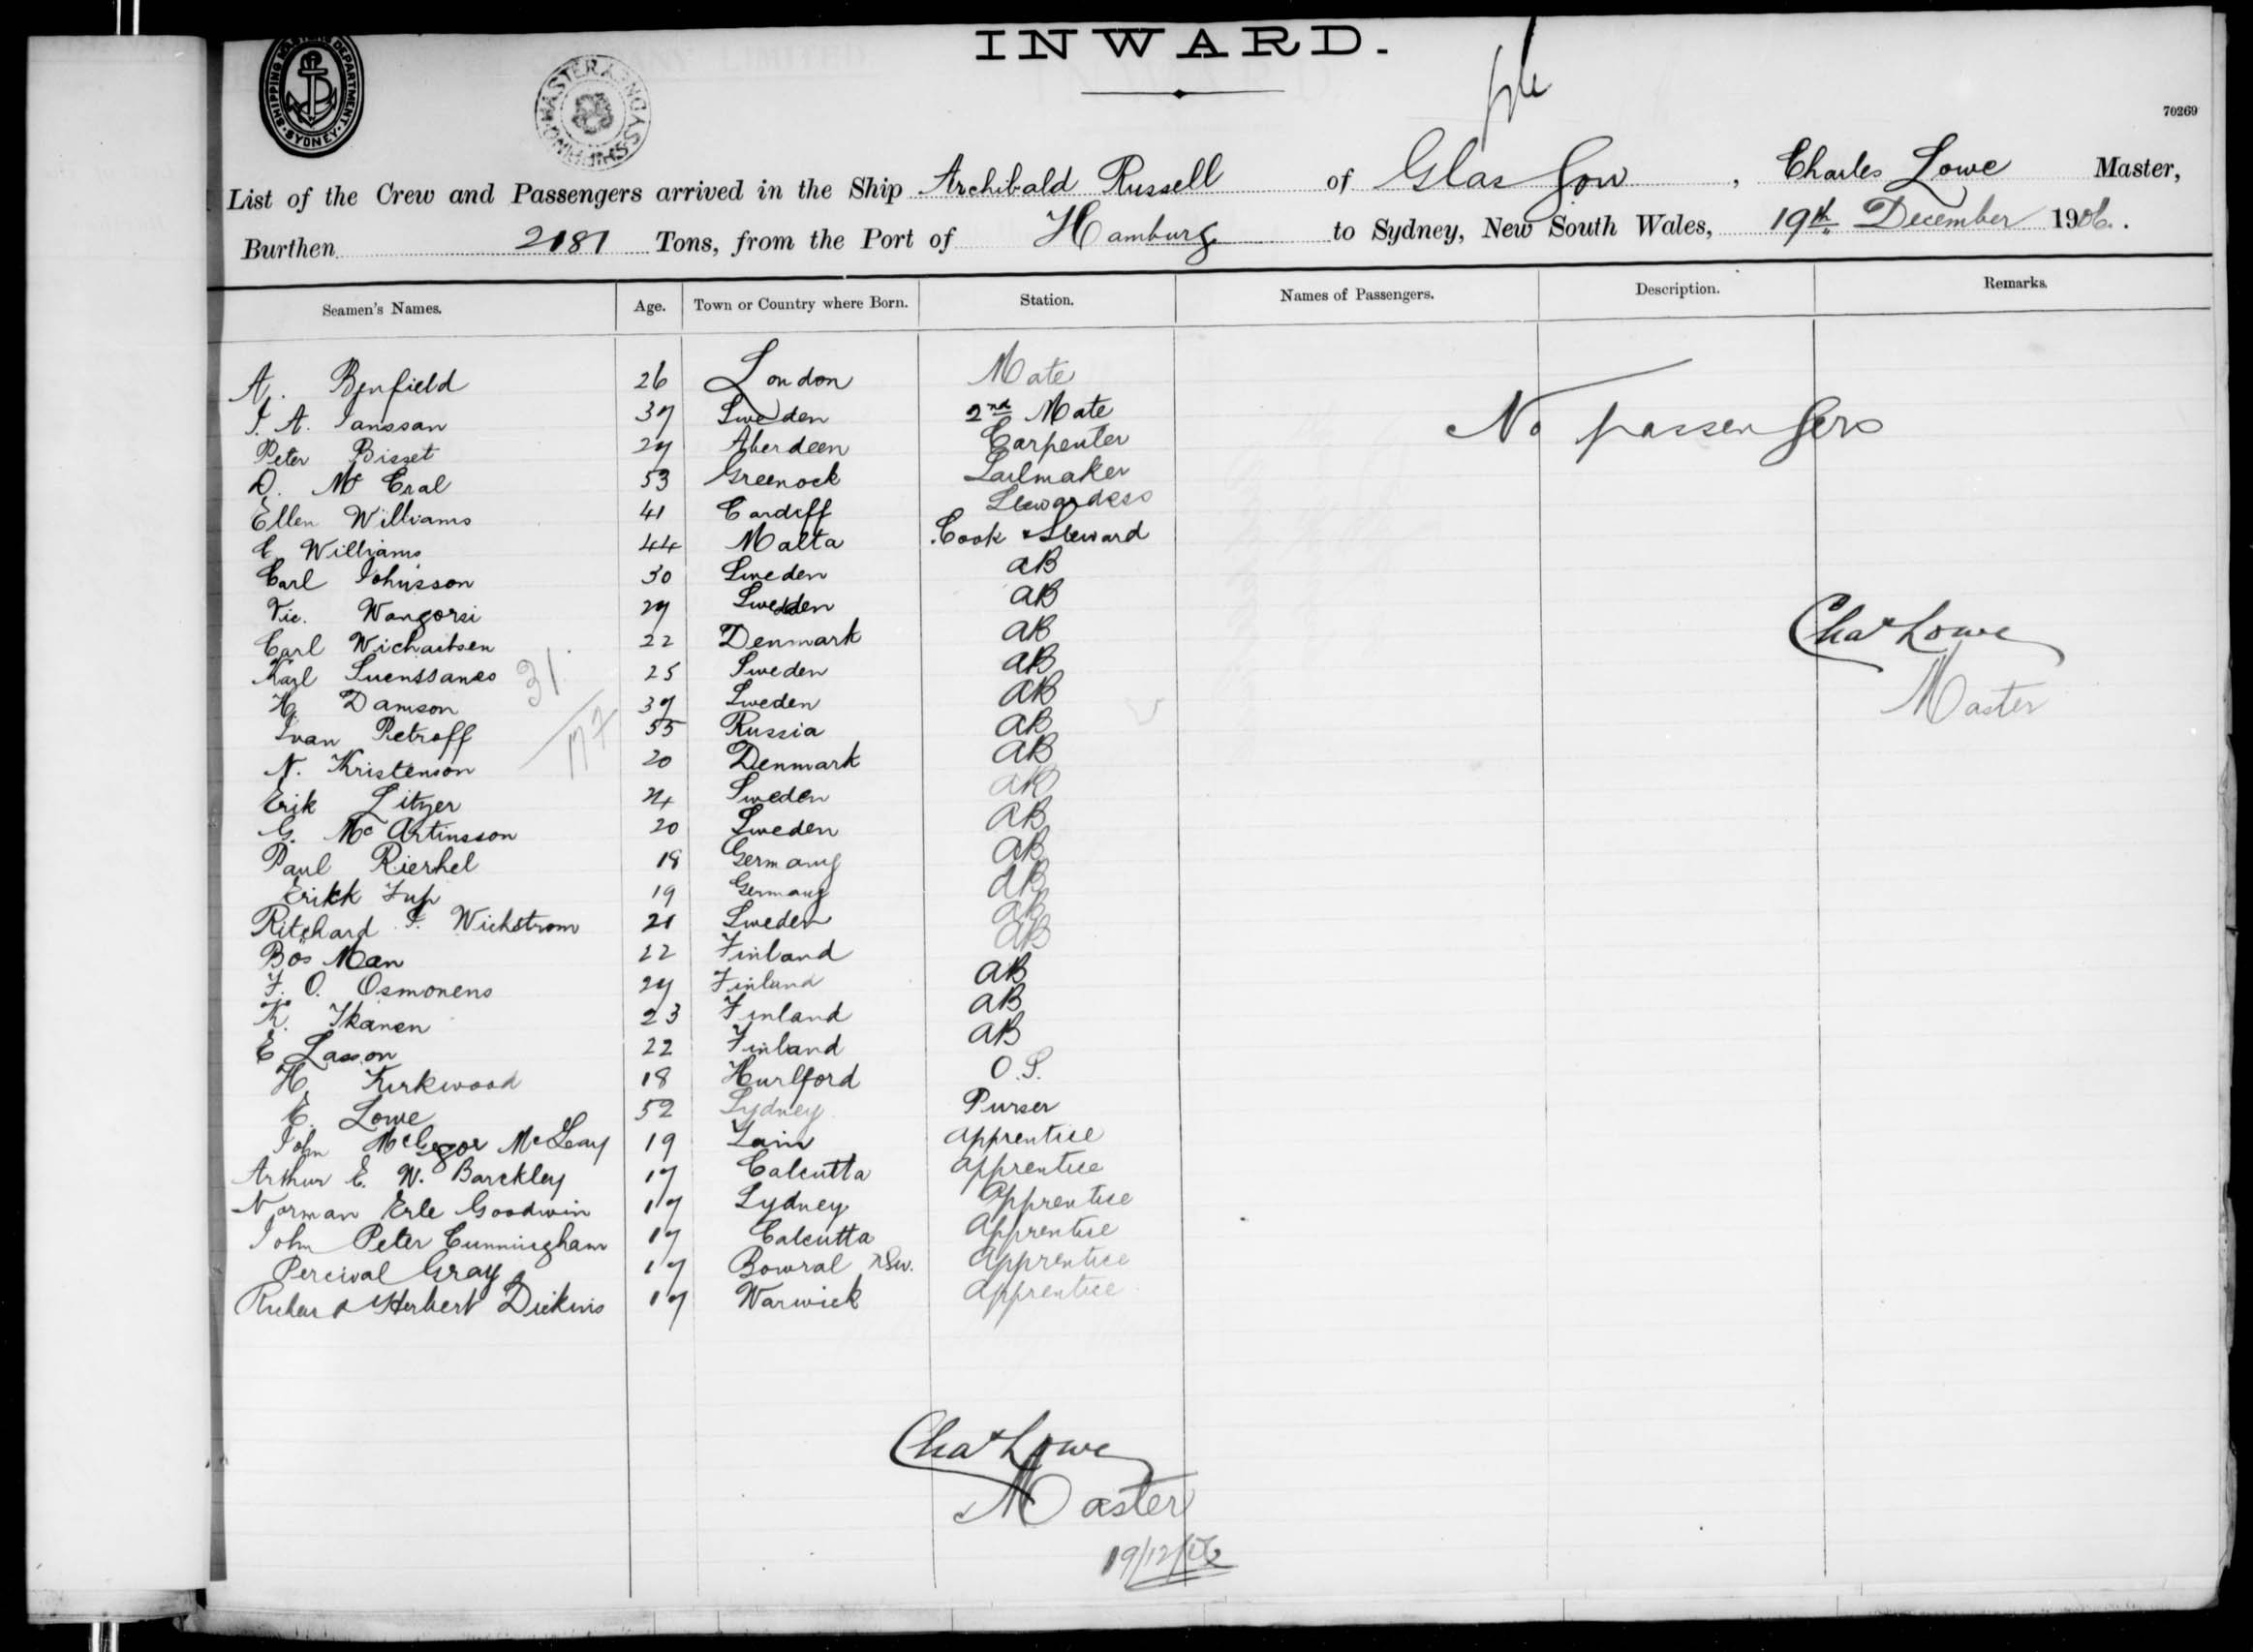 INWARD.
SHIPPING MASTER'S DEPARTMENT. SYDNEY.
70269
List of the Crew and Passengers arrived in the Ship Archibald Russell of Glasgow, Charles Lowe Master,
Burthen 2181 Tons, from the Port of Hamburg to Sydney, New South Wales, 19th December 1906.
Seamen's Names. Age. Town or Country where Born. Station. Names of Passengers. Description. Remarks.
A. Benfield 26 London Mate
J. A. Janssan 37 Sweden 2nd Mate
No passengers
Peter Bisset 27 Aberdeen Carpenter
D. Mc Eral 53 Greenock Sailmaker
Ellen Williams 41 Cardiff Stewardess
E Williams 44 Malta Cook & Steward
Carl Johnsson 30 Sweden AB
Vic. Wangorsi 27 Sweden AB
Carl Wichartsen 22 Denmark AB
Chas Lowe
Master
Karl Suenssanes 25 Sweden AB
31.
H. Damson 37 Sweden AB
Ivan Petroff 55 Russia AB
N. Kristenson 20 Denmark AB
Erik Litzer 24 Sweden AB
G. Mc Artinsson 20 Sweden AB
Paul Rierhel 18 Germany AB
Erikk Fup 19 Germany AB
Ritchard F. Wickstrom 21 Sweden AB
Bös Man 22 Finland AB
F. O. Osmonens 27 Finland AB
K. Ikanen 23 Finland AB
E Lasson 22 Finland AB
H. Kirkwood 18 Hurlford O.S.
E. Lowe 52 Sydney Purser
John McGegor McLeay 19 Apprentice
Arthur E. W. Barckley 17 Calcutta Apprentice
Norman Erle Goodwin 17 Sydney Apprentice
John Peter Cunningham 17 Calcutta Apprentice
Percival Gray 17 Bowral NSW. Apprentice
Richard Herbert Dickins 17 Warwick Apprentice
Chas Lowe
Master
19/12/06